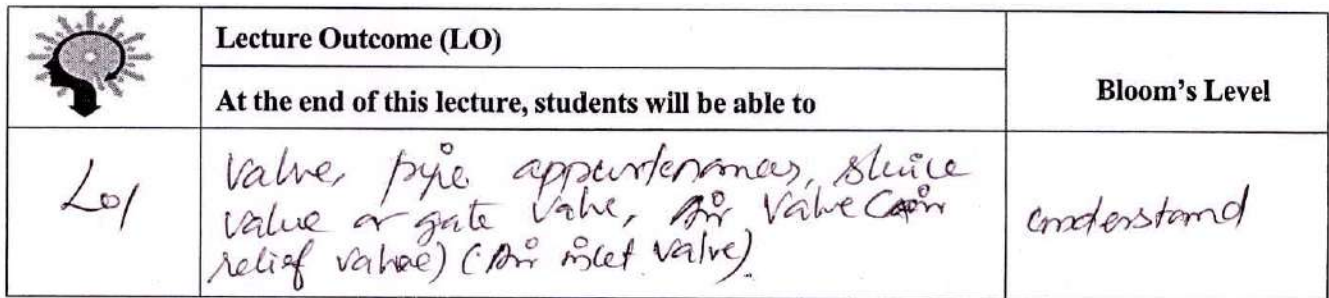 Lecture Outcome (LO)
At the end of this lecture, students will be able to
Bloom's Level
LO1
Valve, pipe appurtenances, sluice
value or gate valve, Air valve (air
relief valve) (Air inlet valve).
understand